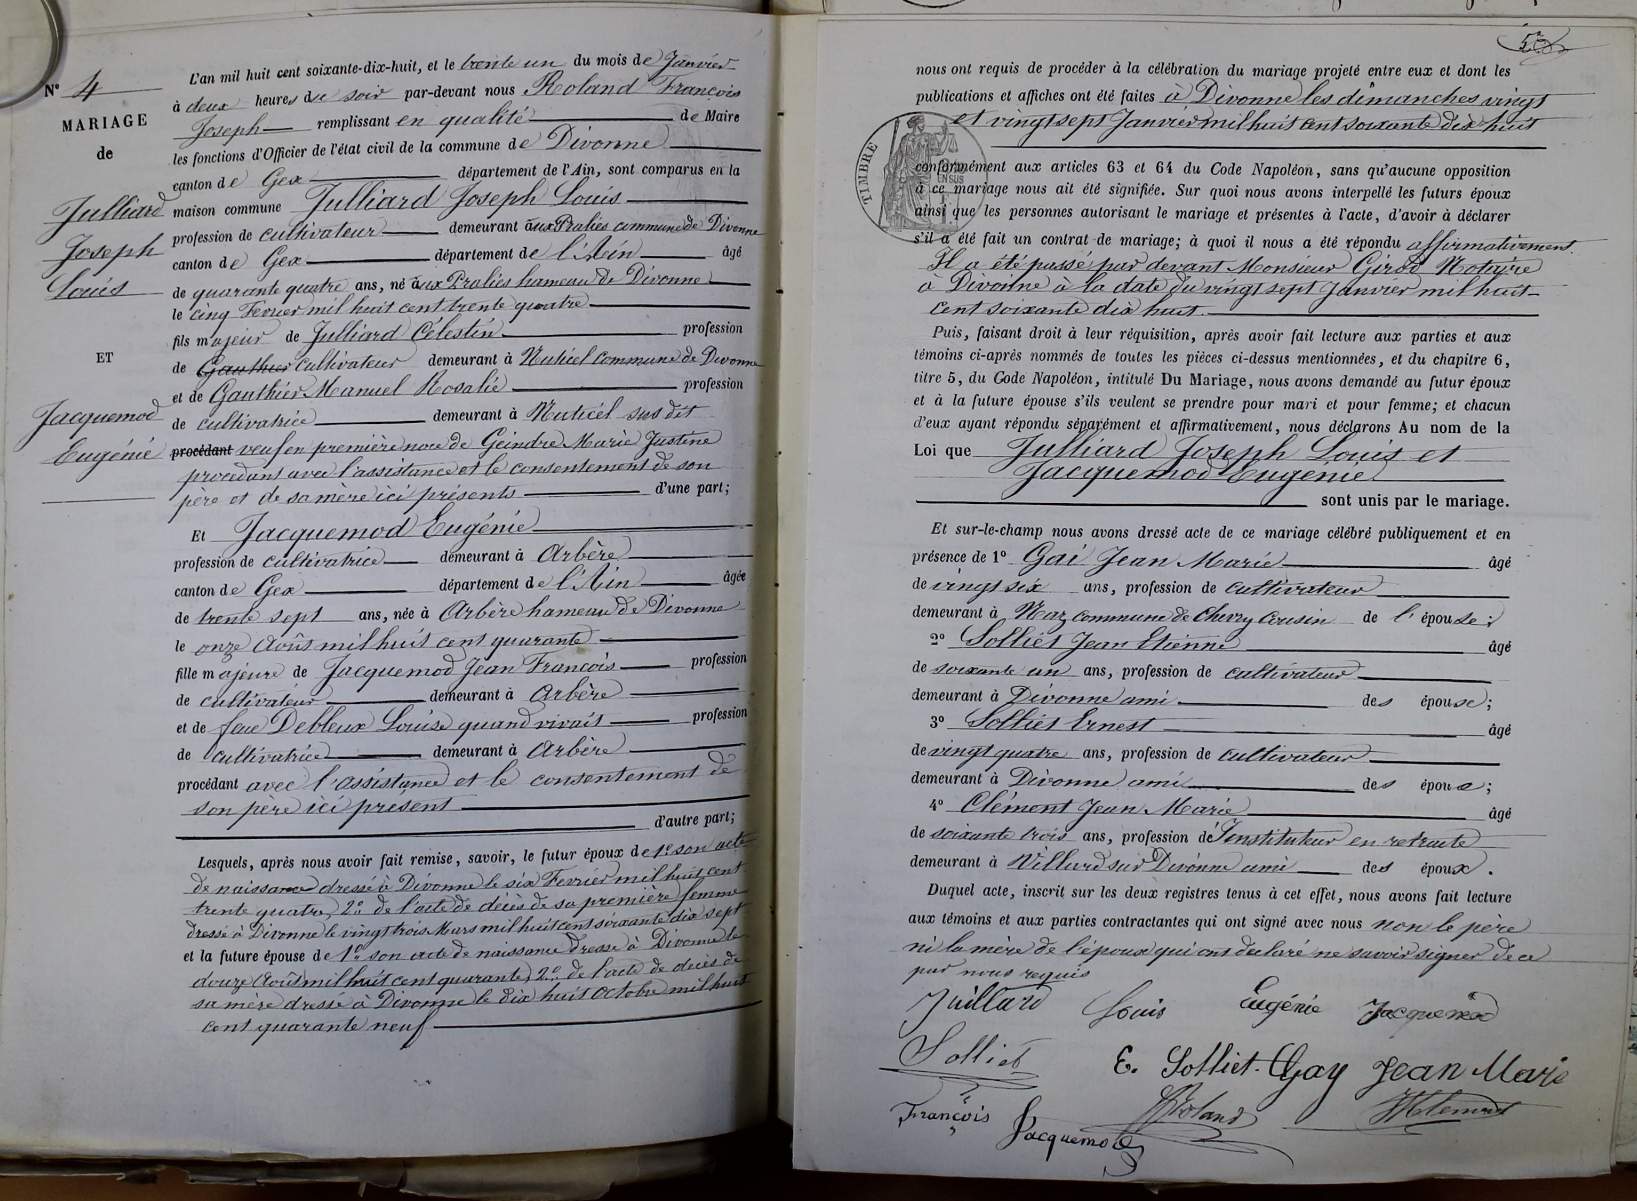 N° 4
MARIAGE
de
Julliard
Joseph
Louis
ET
Jacquemod
Eugénie
L'an mil huit cent soixante-dix-huit, et le trente un du mois de Janvier
à deux heures du soir par-devant nous Roland François
Joseph remplissant en qualité de Maire
les fonctions d'Officier de l'état civil de la commune de Divonne
canton de Gex département de l'Ain, sont comparus en la
maison commune Julliard Joseph Louis
profession de cultivateur demeurant aux Pralies commune de Divonne
canton de Gex département de l'Ain âgé
de quarante quatre ans, né aux Pralies hameau de Divonne
le cinq Fevrier mil huit cent trente quatre
fils majeur de Julliard Célestin profession
de Gauthier cultivateur demeurant à commune de Divonne
et de Gauthier Manuel Rosalie profession
de cultivatrice demeurant à sus dit
procédant veuf en première noce de Geindre Marie Justine
procédant avec l'assistance et le consentement de son
père et de sa mère ici présents d'une part;
Et Jacquemod Eugénie
profession de cultivatrice demeurant à Arbère
canton de Gex département de l'Ain âgée
de trente sept ans, née à Arbère hameau de Divonne
le onze Août mil huit cent quarante
fille majeure de Jacquemod Jean François profession
de cultivateur demeurant à Arbère
et de feue Debleux Louise quand vivait profession
de cultivatrice demeurant à Arbère
procédant avec l'assistance et le consentement de
son père ici présent
d'autre part;
Lesquels, après nous avoir fait remise, savoir, le futur époux de 1° son acte
de naissance dressé à Divonne le six Fevrier mil huit cent
trente quatre, 2° de l'acte de décès de sa première femme
dressé à Divonne le vingt trois Mars mil huit cent soixante dix sept
et la future épouse de 1° son acte de naissance dressé à Divonne le
douze Août mil huit cent quarante, 2° de l'acte de décès de
sa mère dressé à Divonne le dix huit Octobre mil huit
cent quarante neuf
nous ont requis de procéder à la célébration du mariage projeté entre eux et dont les
publications et affiches ont été faites à Divonne les dimanches vingt
et vingt sept Janvier mil huit cent soixante dix huit
TIMBRE
conformément aux articles 63 et 64 du Code Napoléon, sans qu'aucune opposition
à ce mariage nous ait été signifiée. Sur quoi nous avons interpellé les futurs époux
ainsi que les personnes autorisant le mariage et présentes à l'acte, d'avoir à déclarer
s'il a été fait un contrat de mariage; à quoi il nous a été répondu affirmativement.
Il a été passé par devant Monsieur Girod Notaire
à Divonne à la date du vingt sept Janvier mil huit
cent soixante dix huit.
Puis, faisant droit à leur réquisition, après avoir fait lecture aux parties et aux
témoins ci-après nommés de toutes les pièces ci-dessus mentionnées, et du chapitre 6,
titre 5, du Code Napoléon, intitulé Du Mariage, nous avons demandé au futur époux
et à la future épouse s'ils veulent se prendre pour mari et pour femme; et chacun
d'eux ayant répondu séparément et affirmativement, nous déclarons Au nom de la
Loi que Julliard Joseph Louis et
Jacquemod Eugénie
sont unis par le mariage.
Et sur-le-champ nous avons dressé acte de ce mariage célébré publiquement et en
présence de 1° Gai Jean Marie âgé
de vingt six ans, profession de cultivateur
demeurant à commune de Chevry Cousin de l'épouse;
2° Solliet Jean Etienne âgé
de soixante un ans, profession de cultivateur
demeurant à Divonne ami des épouse;
3° Solliet Ernest âgé
de vingt quatre ans, profession de cultivateur
demeurant à Divonne ami des épou;
4° Clément Jean Marie âgé
de soixante trois ans, profession d'Instituteur en retraite
demeurant à Villard sur Divonne ami des époux.
Duquel acte, inscrit sur les deux registres tenus à cet effet, nous avons fait lecture
aux témoins et aux parties contractantes qui ont signé avec nous non le père
ni la mère de l'époux qui ont déclaré ne savoir signer de ce
par nous requis
Juillard Louis Eugénie Jacquemod
Solliet E. Solliet Gay Jean Marie
François Jacquemod Roland Clément